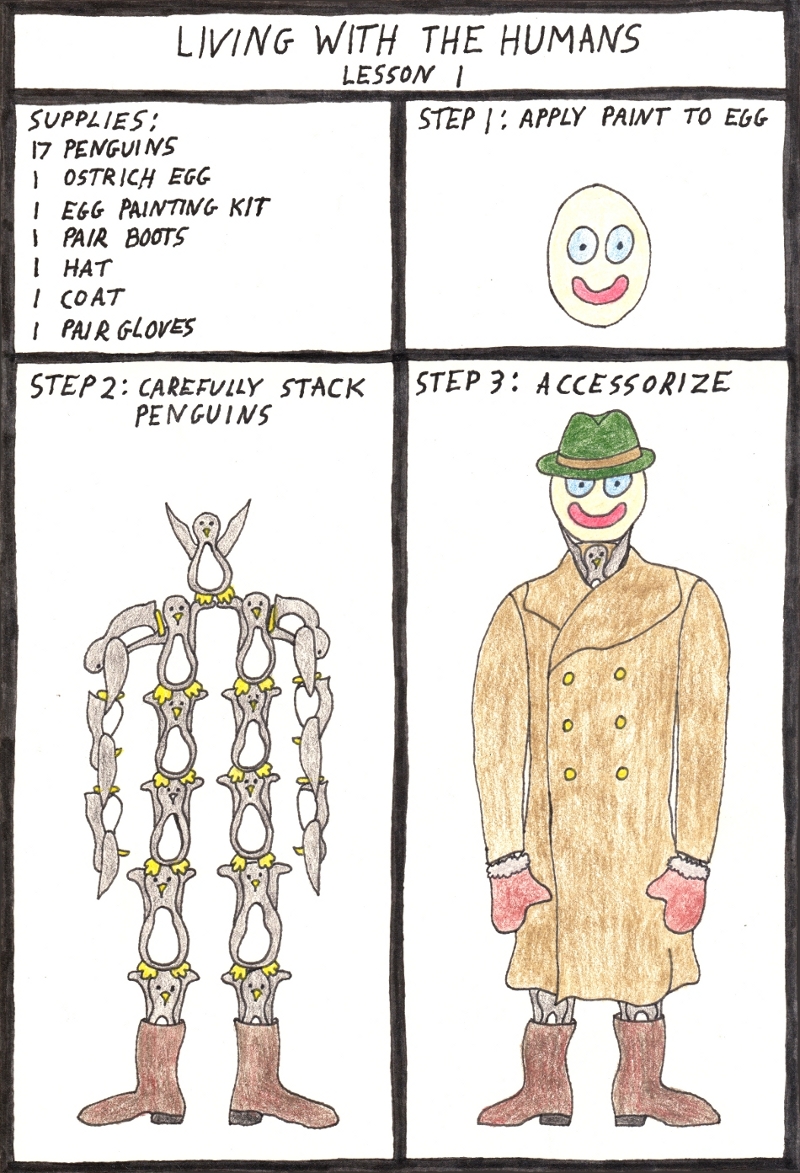 LIVING WITH THE HUMANS
LESSON 1
SUPPLIES:
17 PENGUINS
1 OSTRICH EGG
1 EGG PAINTING KIT
1 PAIR BOOTS
1 HAT
1 COAT
1 PAIR GLOVES
STEP 1: APPLY PAINT TO EGG
STEP 2: CAREFULLY STACK
PENGUINS
STEP 3: ACCESSORIZE